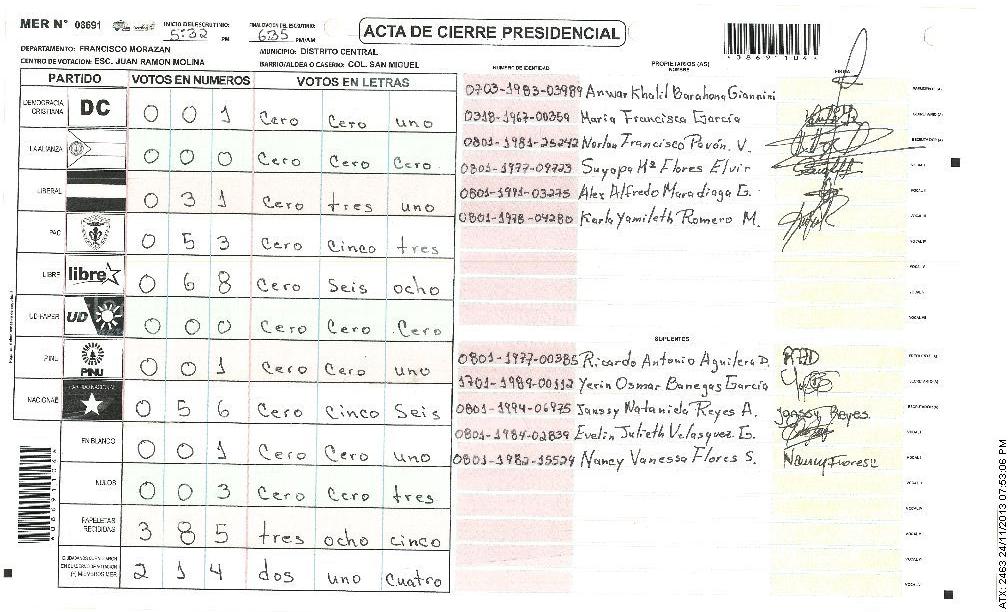 MER N° 08691
INICIO DEL ESCRUTINIO: 5:32 PM
FINALIZACION DEL ESCRUTINIO: 6:35 PM/AM
ACTA DE CIERRE PRESIDENCIAL
DEPARTAMENTO: FRANCISCO MORAZAN
MUNICIPIO: DISTRITO CENTRAL
CENTRO DE VOTACION: ESC. JUAN RAMON MOLINA
BARRIO/ALDEA O CASERIO: COL. SAN MIGUEL
PARTIDO VOTOS EN NUMEROS VOTOS EN LETRAS
DEMOCRACIA CRISTIANA DC 0 0 1 Cero Cero uno
LA ALIANZA 0 0 0 Cero Cero Cero
LIBERAL 0 3 1 Cero tres uno
PAC 0 5 3 Cero Cinco tres
LIBRE libre 0 6 8 Cero Seis ocho
UD FAPER UD 0 0 0 Cero Cero Cero
PINU PINU 0 0 1 Cero Cero uno
NACIONAL 0 5 6 Cero Cinco Seis
EN BLANCO 0 0 1 Cero Cero uno
NULOS 0 0 3 Cero Cero tres
PAPELETAS RECIBIDAS 3 8 5 tres ocho cinco
2 1 4 dos uno cuatro
NUMERO DE IDENTIDAD PROPIETARIOS (AS) NOMBRE FIRMA
0703-1983-03989 Anwar Khalil Barahona Giannini
0318-1967-00359 Maria Francisca García
0801-1981-25242 Norlan Francisco Pavón. V.
0801-1977-09723 Suyapa Mª Flores Elvir
0801-1991-03275 Alex Alfredo Maradiaga G.
0801-1978-04280 Karla Yamileth Romero M.
SUPLENTES
0801-1977-00385 Ricardo Antonio Aguilera D.
1701-1989-00112 Yerin Osmar Banegas García
0801-1994-06975 Janssy Nataniela Reyes A. Janssy Reyes.
0801-1984-02839 Evelin Julieth Velasquez G.
0801-1982-15524 Nancy Vanessa Flores S. Nancy Flores
ATX: 2463 24/11/2013 07:53:06 PM